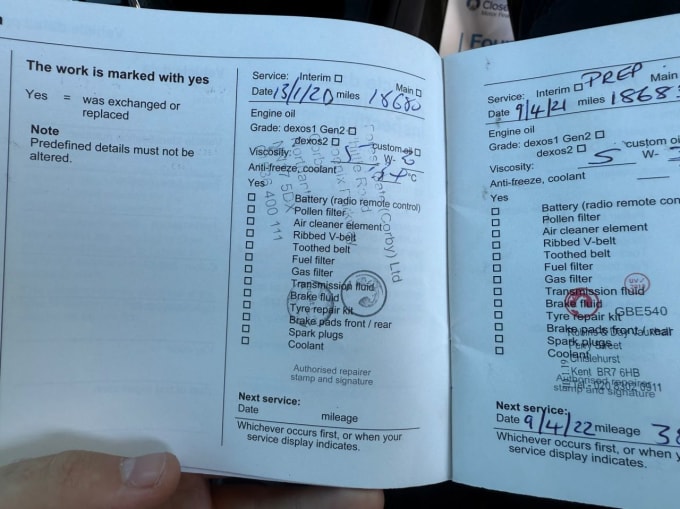 The work is marked with yes
Yes = was exchanged or
replaced
Note
Predefined details must not be
altered.
Service: Interim Main
Date 13/1/20 miles 18680
Engine oil
Grade: dexos1 Gen2
dexos2 custom oil
Viscosity: 5 W-
Anti-freeze, coolant °C
Yes
Battery (radio remote control)
Pollen filter
Air cleaner element
Ribbed V-belt
Toothed belt
Fuel filter
Gas filter
Transmission fluid
Brake fluid
Tyre repair kit
Brake pads front / rear
Spark plugs
Coolant
(Corby) Ltd
400 111
Authorised repairer
stamp and signature
Next service:
Date mileage
Whichever occurs first, or when your
service display indicates.
Close
Motor
Service: Interim PREP Main
Date 9/4/21 miles 18683
Engine oil
Grade: dexos1 Gen2
dexos2 custom oil
Viscosity: 5 W-
Anti-freeze, coolant
Yes
Battery (radio remote con
Pollen filter
Air cleaner element
Ribbed V-belt
Toothed belt
Fuel filter
Gas filter
Transmission fluid
Brake fluid
Tyre repair kit GBE540
Brake pads front / rear
Spark plugs
Coolant
Chislehurst
Kent BR7 6HB
Authorised repairer
stamp and signature
Next service:
Date 9/4/22 mileage 38
Whichever occurs first, or when y
service display indicates.